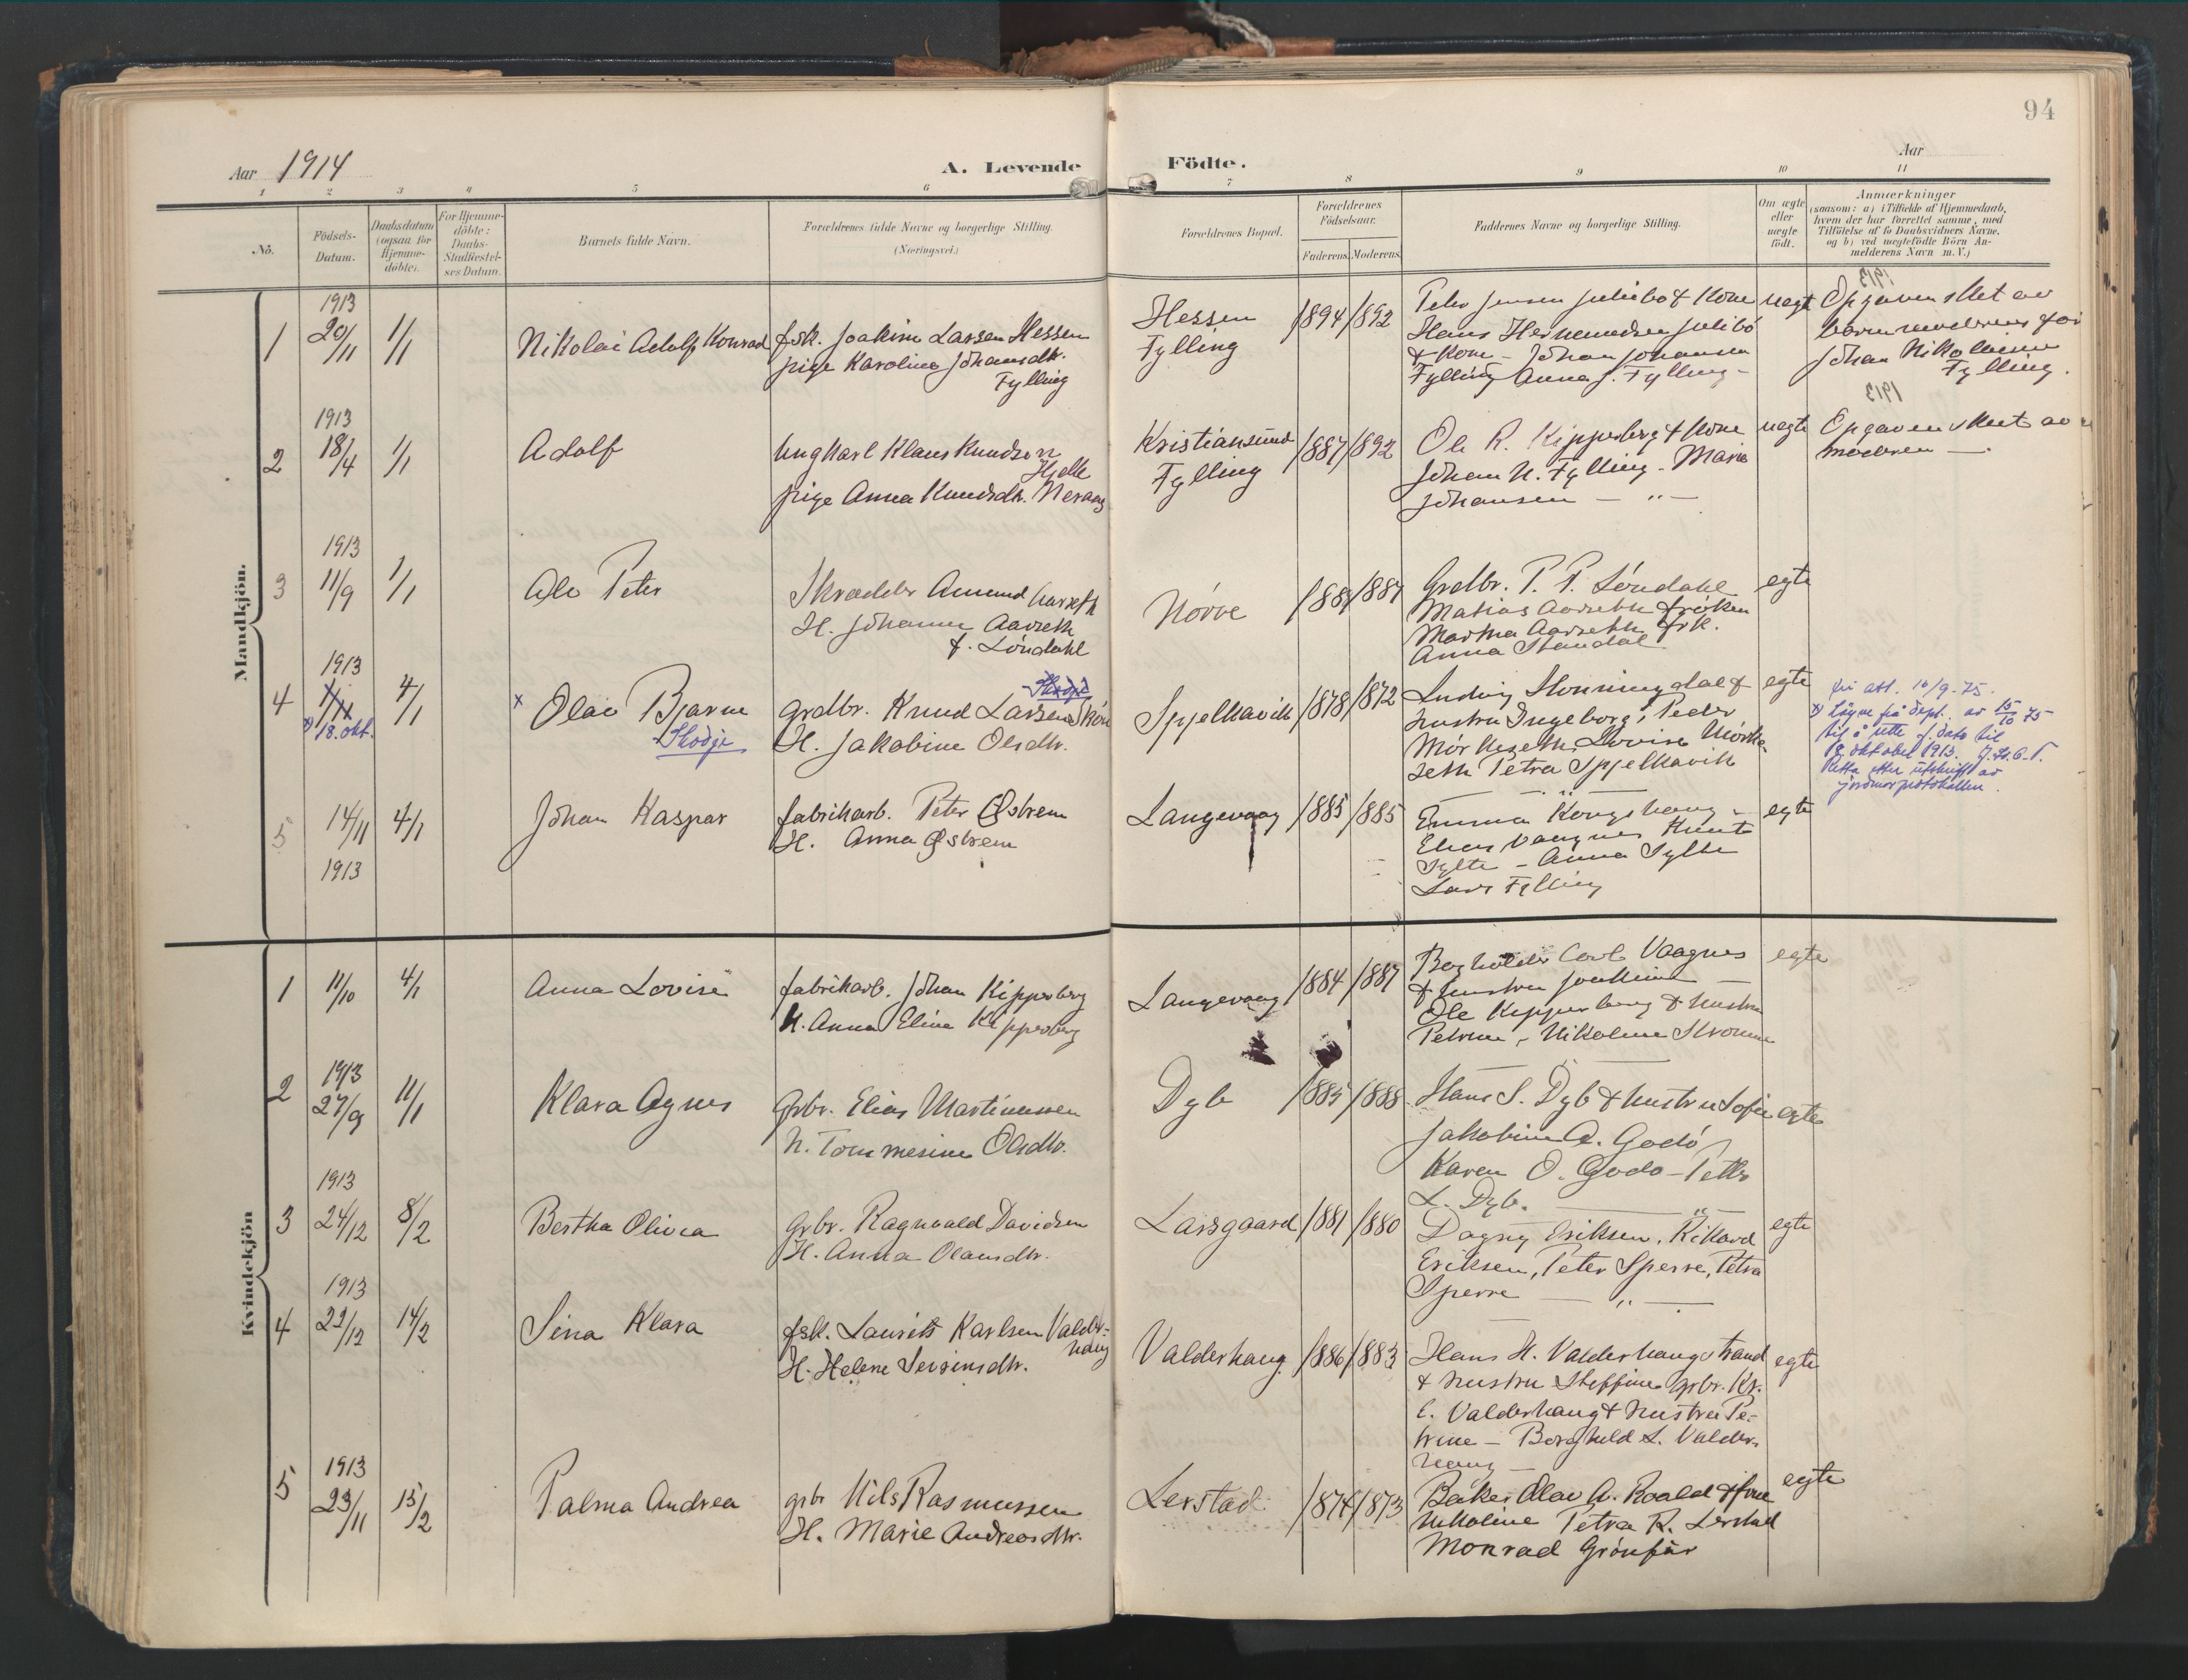 94
Aar 1914
A. Levende Födte.
Aar
1 2 3 4 5 6 7 8 9 10 11
Nó. Födsels-Datum. Daabsdatum (ogsaa for Hjemme-döbte). For Hjemme-döbte: Daabs-Stadfæstel-ses Datum. Barnets fulde Navn. Forældrenes fulde Navne og borgerlige Stilling. (Næringsvei.) Forældrenes Bopæl. Forældrenes Födselsaar. Faderens. Moderens. Faddernes Navne og borgerlige Stilling. Om ægte eller uægte födt. Anmærkninger (saasom: a) i Tilfælde af Hjemmedaab, hvem der har forrettet samme, med Tilföielse af to Daabsvidners Navne, og b) ved uægtefödte Börn An-melderens Navn m. V.)
Mandkjön.
1 1913 20/11 1/1 Nikolai Adolf Konrad
fsk. Joakim Larsen Hessen
pige Karoline Johansdtr.
Fylling
Hessen
Fylling
1894 1892
Peter Jensen Julibø & Kone
Hans Julibö
& Kone - Johan Johansen
Fylling Anna J. Fylling -
uegte
Opgaven sket av
barnemoderens far
Johan Nikolaisen
Fylling.
2 1913 18/4 1/1 Adolf
Ungkarl Klaus Knudsen
Hjelle
pige Anna Knudsdtr.
Kristiansund
Fylling
1887 1892
Ole R. Kipperberg & Kone
Johan N. Fylling - Marie
Johansen - " -
uegte
Opgaven sket av
moderen -
3 1913 11/9 1/1 Peter
Skrædder Amund Aarseth
H. Johanne Aarseth
f. Löndahl
Nörve
1887
Grdbr. P. P. Löndahl
Matias Aarseth fröken
Martha Aarseth frk.
Anna Standal
egte
4 1913 1/11 4/1
x) 18. okt.
x Olav Bjarne
Skodje
grdbr. Knud Larsen
H. Jakobine Olsdtr.
Spjelkavik
1878 1872
Ludvig Honningdal &
hustru Ingeborg, Peder
Mörkeseth, Lovise Mörke-
seth Petra Spjelkavik
- " -
egte
att. 16/9-75.
x) Löyve frå dept. av 15/10 75
til å rette f. dato til
18 oktober 1913.
Retta etter utskrift av
jordmorprotokollen.
5 14/11 4/1
1913
Johan Kaspar
fabrikarb. Peter Østrem
H. Anna Østrem
Langevaag
1885 1885
Emma Kongshaug -
Elias Vaagnes Knut
Sylte - Anna Sylte
Lars Fylling
egte
Kvindekjön
1 11/10 4/1 Anna Lovise
fabrikarb. Johan Kipperberg
H. Anna Eline Kipperberg
Langevaag
1884 1887
Bogholder Carl Vaagnes
& hustru Joakime
Ole Kipperberg & hustru
Petrine, Nikoline Stromme
egte
2 1913 27/9 11/1 Klara Agnes
Grbr. Elias Martinussen
H. Tommesine Olsdtr.
Dyb
1885 1888
Hans S. Dyb & hustru Sofie
Jakobine A. Godö
Karen O. Godö - Petter
L. Dyb. - " -
egte
3 1913 24/12 8/2 Bertha Olivia
Grbr. Ragnvald Davidsen
H. Anna Olausdtr.
Larsgaard
1881 1880
Dagny Eriksen, Rikard
Eriksen, Peter Sperre, Petra
Sperre - " -
egte
4 1913 22/12 14/2 Sina Klara
fsk. Laurits Karlsen Valder-
haug
H. Helene Seviensdtr.
Valderhaug
1886 1883
Hans H. Valderhaugstrand
& hustru Steffine grbr. Kr.
E. Valderhaug & hustru Pe-
trine - Borghild L. Valder-
haug -
egte
5 1913 23/11 15/2 Palma Andrea
grbr Nils Rasmussen
H. Marie Andreasdtr.
Lerstad
1874 1873
Baker Olav A. Roald & frue
Nikoline Petra R. Lerstad
Monrad Grönfur
egte